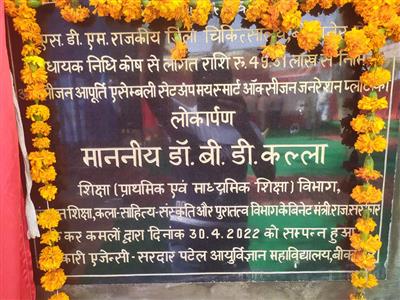 एस. डी. एम. राजकीय जिला चिकित्सालय,
धायक निधि कोष से लागत राशि रु. 49.51 लाख से
ऑक्सीजन आपूर्ति एसेम्बली सेटअप मयस्मार्ट ऑक्सीजन जनरेशन प्लांट का
लोकार्पण
माननीय डॉ. बी. डी. कल्ला
शिक्षा (प्राथमिक एवं माध्यमिक शिक्षा) विभाग,
शिक्षा, कला-साहित्य-संस्कृति और पुरातत्व विभाग केबिनेट मंत्री, राज. सरकार
के कर कमलों द्वारा दिनांक 30.4.2022 को सम्पन्न हुआ
कारी एजेन्सी - सरदार पटेल आयुर्विज्ञान महाविद्यालय, बीका